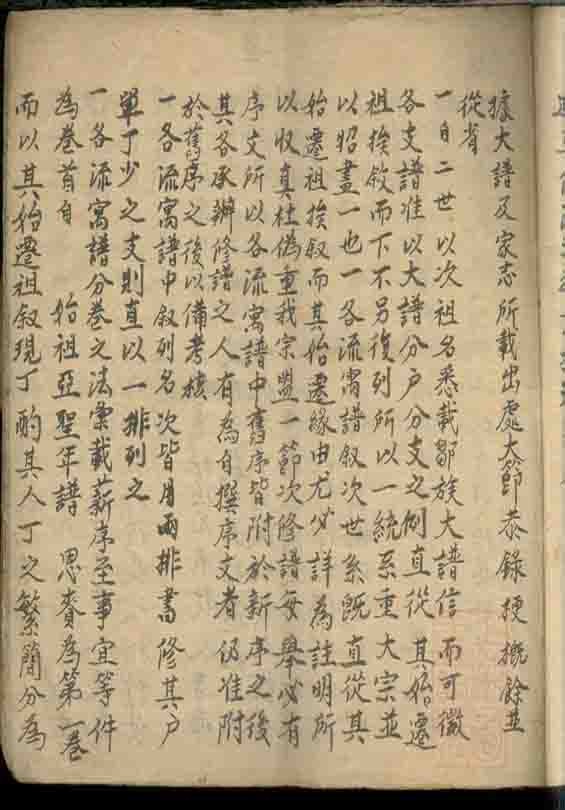 據大譜及家志所載出處大節恭錄梗概餘並
從省
一自二世以次祖名悉載鄒族大譜信而可徵
各支譜准以大譜分户分支之例直從其始遷
祖挨敘而下不另復列所以一統系重大宗並
以昭畫一也一各流寓譜叙次世系既直從其
始遷祖挨叙而其始遷緣由尤必詳為註明所
以收真杜偽重我宗盟一節次修譜每舉必有
序文所以各流寓譜中舊序皆附於新序之後
其各承辦修譜之人有為自撰序文者仍准附
於舊序之後以備考核
一各流寓譜中叙列名次皆用兩排書修其户
單丁少之支則直以一排列之
一各流寓譜分卷之法彙載新序至事宜等件
為卷首自 始祖亞聖年譜 恩賚為第一卷
而以其始遷祖叙現丁酌其人丁之繁簡分為